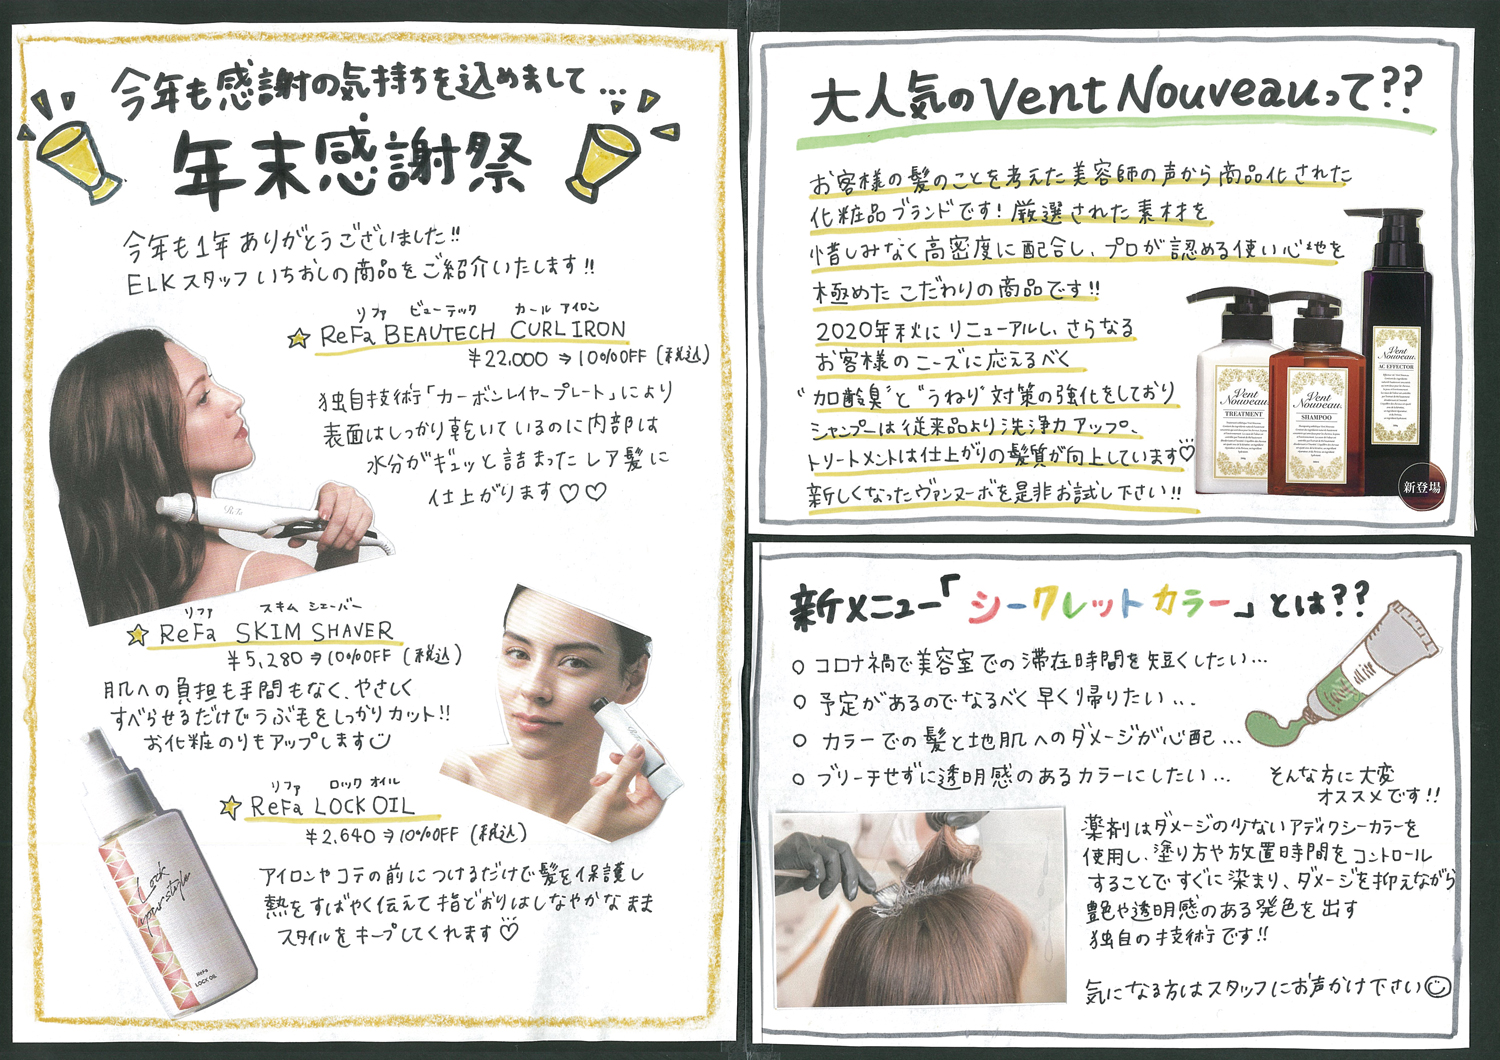 今年も感謝の気持ちを込めまして...
年末感謝祭
今年も1年ありがとうございました!!
ELKスタッフいちおしの商品をご紹介いたします!!
リファ ビューテック カール アイロン
ReFa BEAUTECH CURL IRON
¥22.000⇒10%OFF(税込)
独自技術「カーボンレイヤープレート」により
表面はしっかり乾いているのに内部は
水分がギュッと詰まったレア髪に
仕上がります♡♡
ReFa
リファ スキム シェーバー
ReFa SKIM SHAVER
¥5,280⇒10%OFF(税込)
肌への負担も手間もなく、やさしく
すべらせるだけでうぶ毛をしっかりカット!!
お化粧のりもアップします
リファ ロック オイル
ReFa LOCK OIL
¥2,640⇒10%OFF(税込)
アイロンやコテの前につけるだけで髪を保護し
熱をすばやく伝えて指どおりはしなやかなまま
スタイルをキープしてくれます♡
Lock
your style
ReFa
LOCK OIL
大人気のVent Nouveauって??
お客様の髪のことを考えた美容師の声から商品化された
化粧品ブランドです!厳選された素材を
惜しみなく高密度に配合し、プロが認める使い心地を
極めたこだわりの商品です!!
2020年秋にリニューアルし、さらなる
お客様のニーズに応えるべく
"加齢臭"と"うねり"対策の強化をしており
シャンプーは従来品より洗浄力アップ、
トリートメントは仕上がりの髪質が向上しています♡
新しくなったヴァンヌーボを是非お試し下さい!!
Vent
Nouveau.
TREATMENT
Vent
Nouveau.
SHAMPOO
Vent
Nouveau.
AC EFFECTOR
新登場
新メニュー「シークレットカラー」とは??
○コロナ禍で美容室での滞在時間を短くしたい...
○予定があるのでなるべく早くり帰りたい...
○カラーでの髪と地肌へのダメージが心配...
○ブリーチせずに透明感のあるカラーにしたい...
そんな方に大変
オススメです!!
薬剤はダメージの少ないアディクシーカラーを
使用し、塗り方や放置時間をコントロール
することですぐに染まり、ダメージを抑えながら
艶や透明感のある発色を出す
独自の技術です!!
気になる方はスタッフにお声かけ下さい